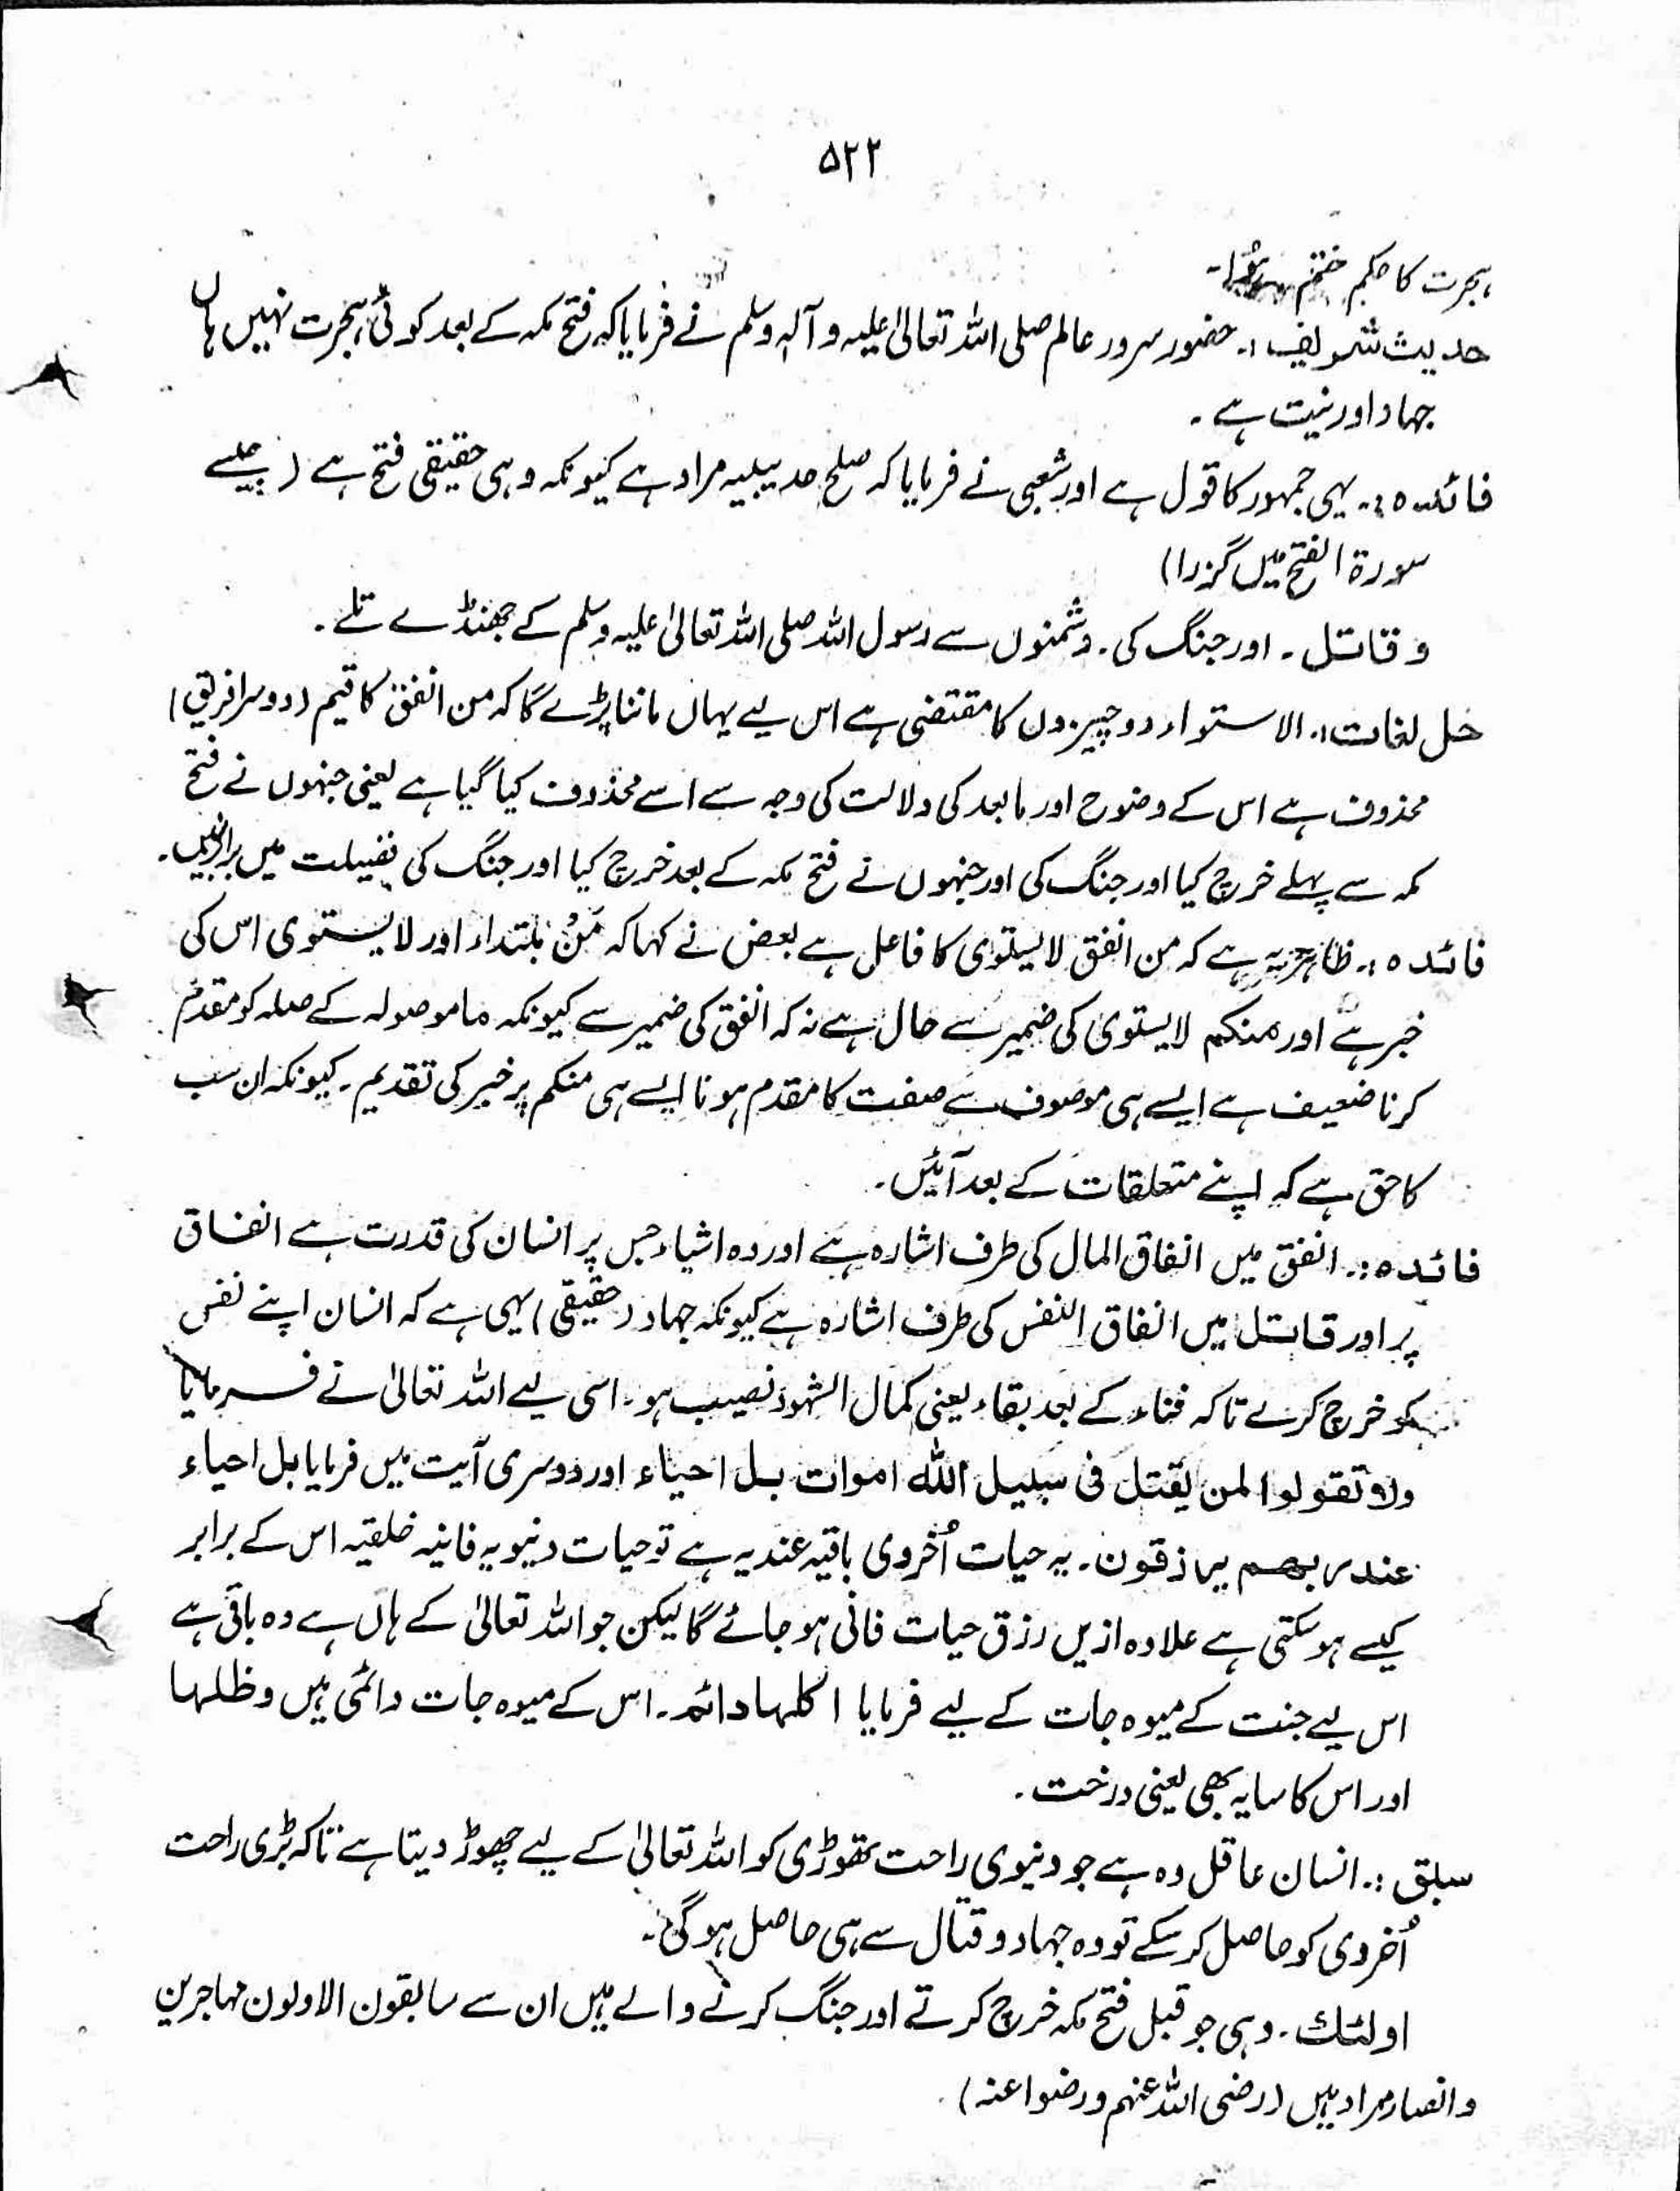 ۵۲۲
ہجرت کا حکم ختم ہوا۔
حدیث شریف :۔ حضور سرور عالم صلی اللہ تعالیٰ علیہ وآلہ وسلم نے فرمایا کہ فتح مکہ کے بعد کوئی ہجرت نہیں ہاں
جہاد اور نیت ہے ۔
فائدہ :۔ یہی جمہور کا قول ہے اور شعبی نے فرمایا کہ صلح حدیبیہ مراد ہے کیونکہ وہی حقیقی فتح ہے (جیسے
سورۃ الفتح میں گزرا)
وقاتل ۔ اور جنگ کی ۔ دشمنوں سے رسول اللہ صلی اللہ تعالیٰ علیہ وسلم کے جھنڈے تلے ۔
حل لغات :۔ الاستواء دو چیزوں کا مقتضی ہے اس لیے یہاں ماننا پڑے گا کہ من انفق کا قیم (دوسرا فریق)
محذوف ہے اس کے وضوح اور مابعد کی دلالت کی وجہ سے اسے محذوف کیا گیا ہے یعنی جنہوں نے فتح
مکہ سے پہلے خرچ کیا اور جنگ کی اور جنہوں نے فتح مکہ کے بعد خرچ کیا اور جنگ کی فضیلت میں برابر نہیں ۔
فائدہ :۔ ظاہر یہ ہے کہ من انفق لایستوی کا فاعل ہے بعض نے کہا کہ مَنْ مبتداء اور لا یستوی اس کی
خبر ہے اور منکم لایستوی کی ضمیر سے حال ہے نہ کہ انفق کی ضمیر سے کیونکہ ما موصولہ کے صلہ کو مقدم
کرنا ضعیف ہے ایسے ہی موصوف سے صفت کا مقدم ہونا ایسے ہی منکم پر خبر کی تقدیم ۔ کیونکہ ان سب
کا حق ہے کہ اپنے متعلقات کے بعد آئیں ۔
فائدہ :۔ انفق میں انفاق المال کی طرف اشارہ ہے اور وہ اشیاء جس پر انسان کی قدرت ہے انفاق
پر اور قاتل میں انفاق النفس کی طرف اشارہ ہے کیونکہ جہاد (حقیقی) یہی ہے کہ انسان اپنے نفس
کو خرچ کرے تاکہ فناء کے بعد بقاء یعنی کمال الشہود نصیب ہو ۔ اسی لیے اللہ تعالیٰ نے فرمایا
ولا تقولوا لمن یقتل فی سبیل اللہ اموات بل احیاء اور دوسری آیت میں فرمایا بل احیاء
عند ربھم یرزقون ۔ یہ حیات اُخروی باقیہ عندیہ ہے تو حیات دنیویہ فانیہ خلقیہ اس کے برابر
کیسے ہو سکتی ہے علاوہ ازیں رزق حیات فانی ہو جائے گا لیکن جو اللہ تعالیٰ کے ہاں ہے وہ باقی ہے
اس لیے جنت کے میوہ جات کے لیے فرمایا اکلہا دائم ۔ اس کے میوہ جات دائمی ہیں وظلہا
اور اس کا سایہ بھی یعنی درخت ۔
سبق :۔ انسان عاقل وہ ہے جو دنیوی راحت تھوڑی کو اللہ تعالیٰ کے لیے چھوڑ دیتا ہے تاکہ بڑی راحت
اُخروی کو حاصل کر سکے تو وہ جہاد و قتال سے ہی حاصل ہو گی ۔
اولئک ۔ وہی جو قبل فتح مکہ خرچ کرتے اور جنگ کرنے والے ہیں ان سے سابقون الاولون مہاجرین
وانصار مراد ہیں (رضی اللہ عنہم ورضوا عنہ) ۔